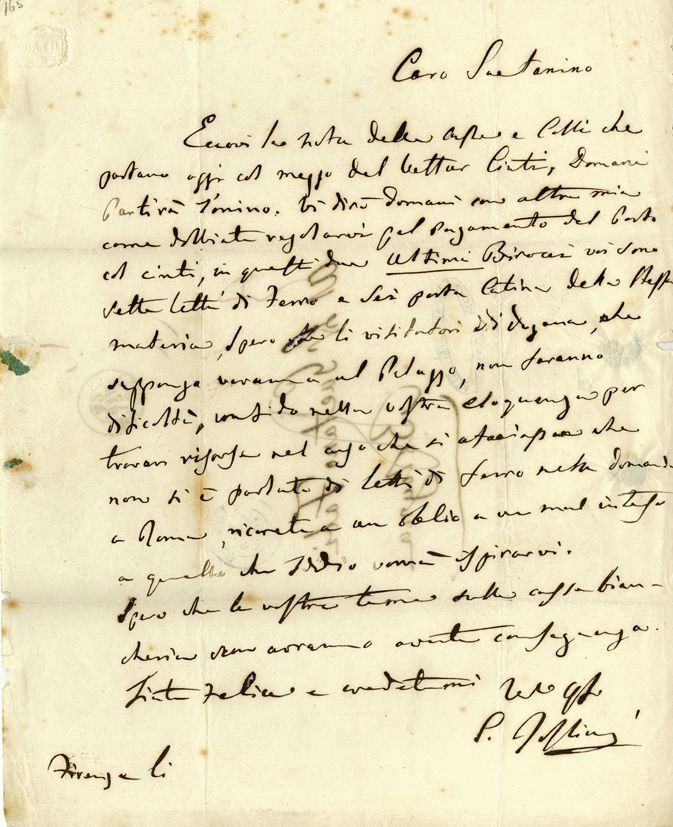 165
Caro Gaetanino
Eccovi la nota delle casse e Colli che
partano oggi col mezzo del Vettur Cinti, Domani
Partirà Tonino. Vi dirò domani con altra mia
come dobbiate regolarvi pel pagamento del Porto
col Cinti, in questi due ultimi Birocci vi sono
sette letti di Ferro e sei porta Catina della stessa
materia, spero che li visitatori di dogana, che
suppongo verranno al Palazzo, non faranno
dificoltà, confido nella vostra eloquenza per
trovare risorsa nel caso che si che
non si è parlato di letti di ferro nella domanda
a Roma, ricorrete a un oblio a un mal inteso
a quello che Iddio vorrà ispirarvi.
Spero che le vostre teme sulla cassa bian-
cheria non avranno avuto conseguenza.
Siate Felice e credetemi
Firenze li